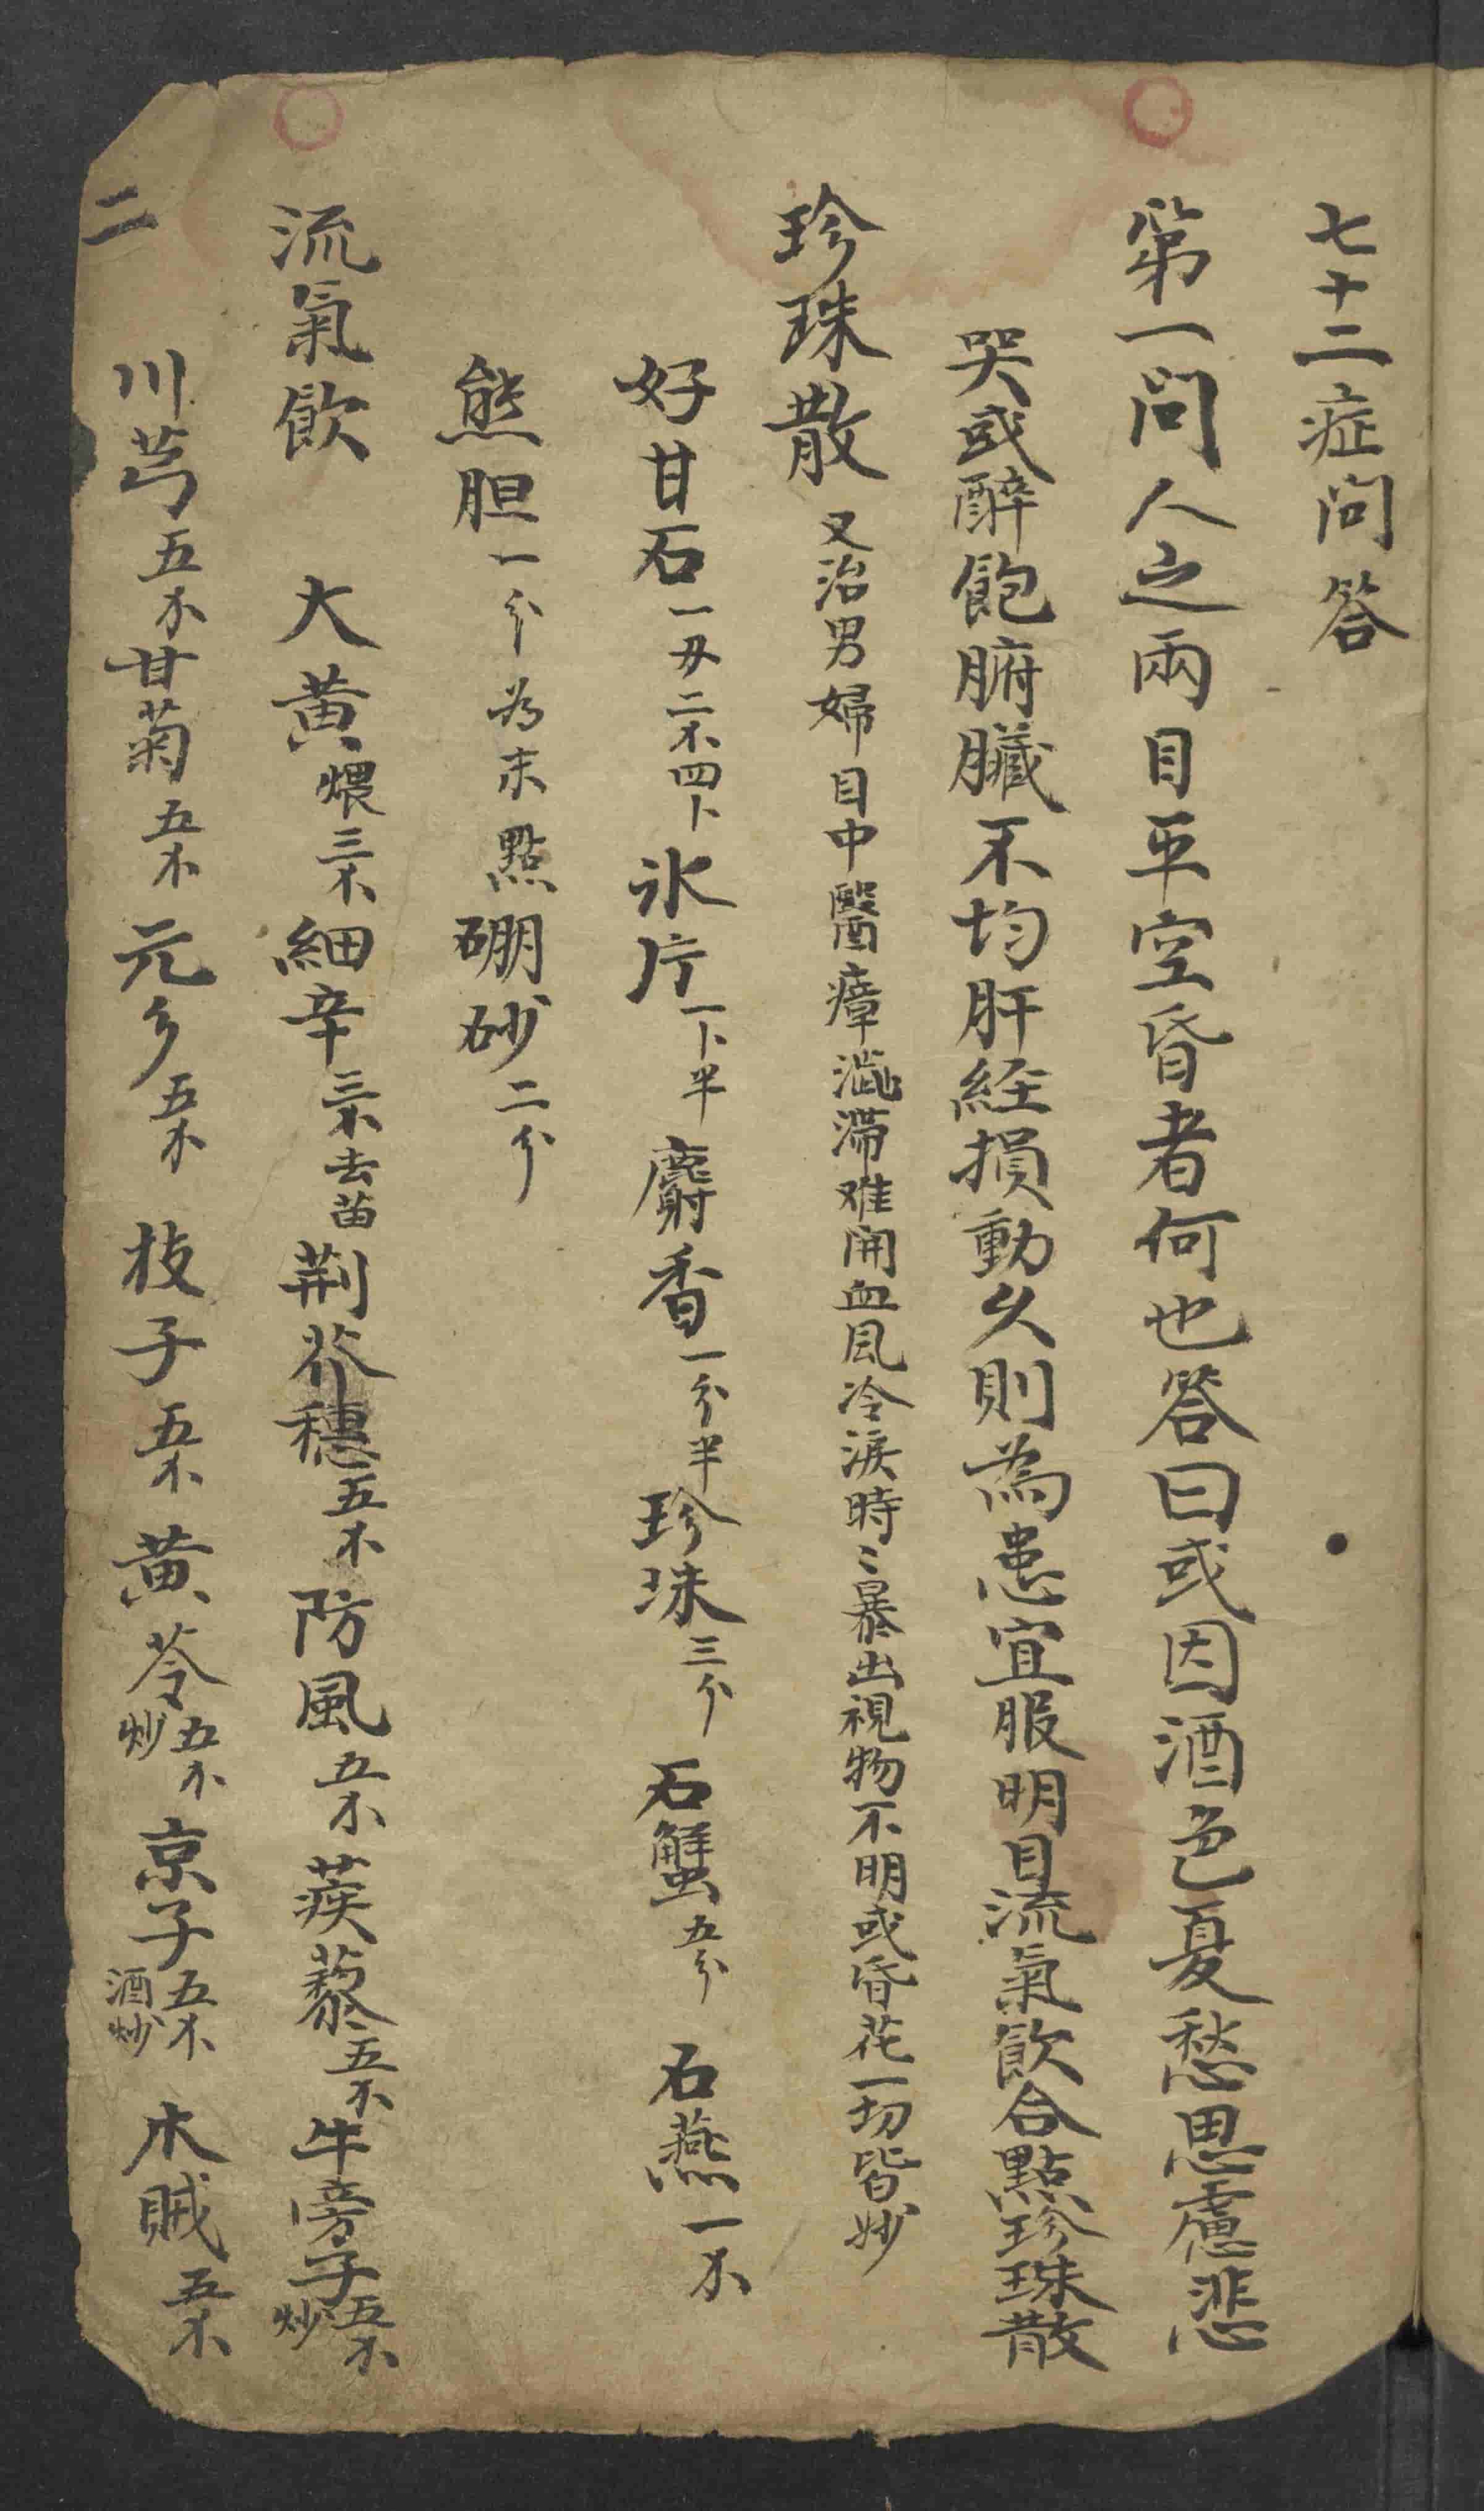 七十二症問答
第一問人之兩目平空昏者何也答曰或因酒色憂愁思慮悲
哭或醉飽腑臟不均肝経損動久則為患宜服明目流氣飲合點珍珠散
珍珠散 又治男婦目中醫瘴澁滯难開血風冷淚時〻暴出視物不明或昏花一切皆妙
好甘石一刄二不四卜 氷片一卜半 麝香一分半 珍珠三分 石蟹五分 石燕一不
熊胆一分 為末點 硼砂二分
流氣飲 大黄煨三不 細辛三不去苗 荆芥穗五不 防風五不 蒺藜五不 牛旁子五不炒
二 川芎五不 甘菊五不 元乡五不 枝子五不 黄芩五不炒 京子五不酒炒 木賊五不